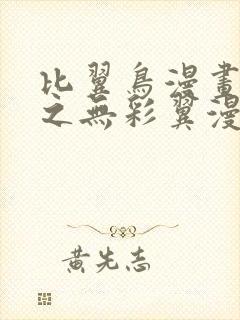 比翼鳥漫畫
之無彩翼漫
黃先志